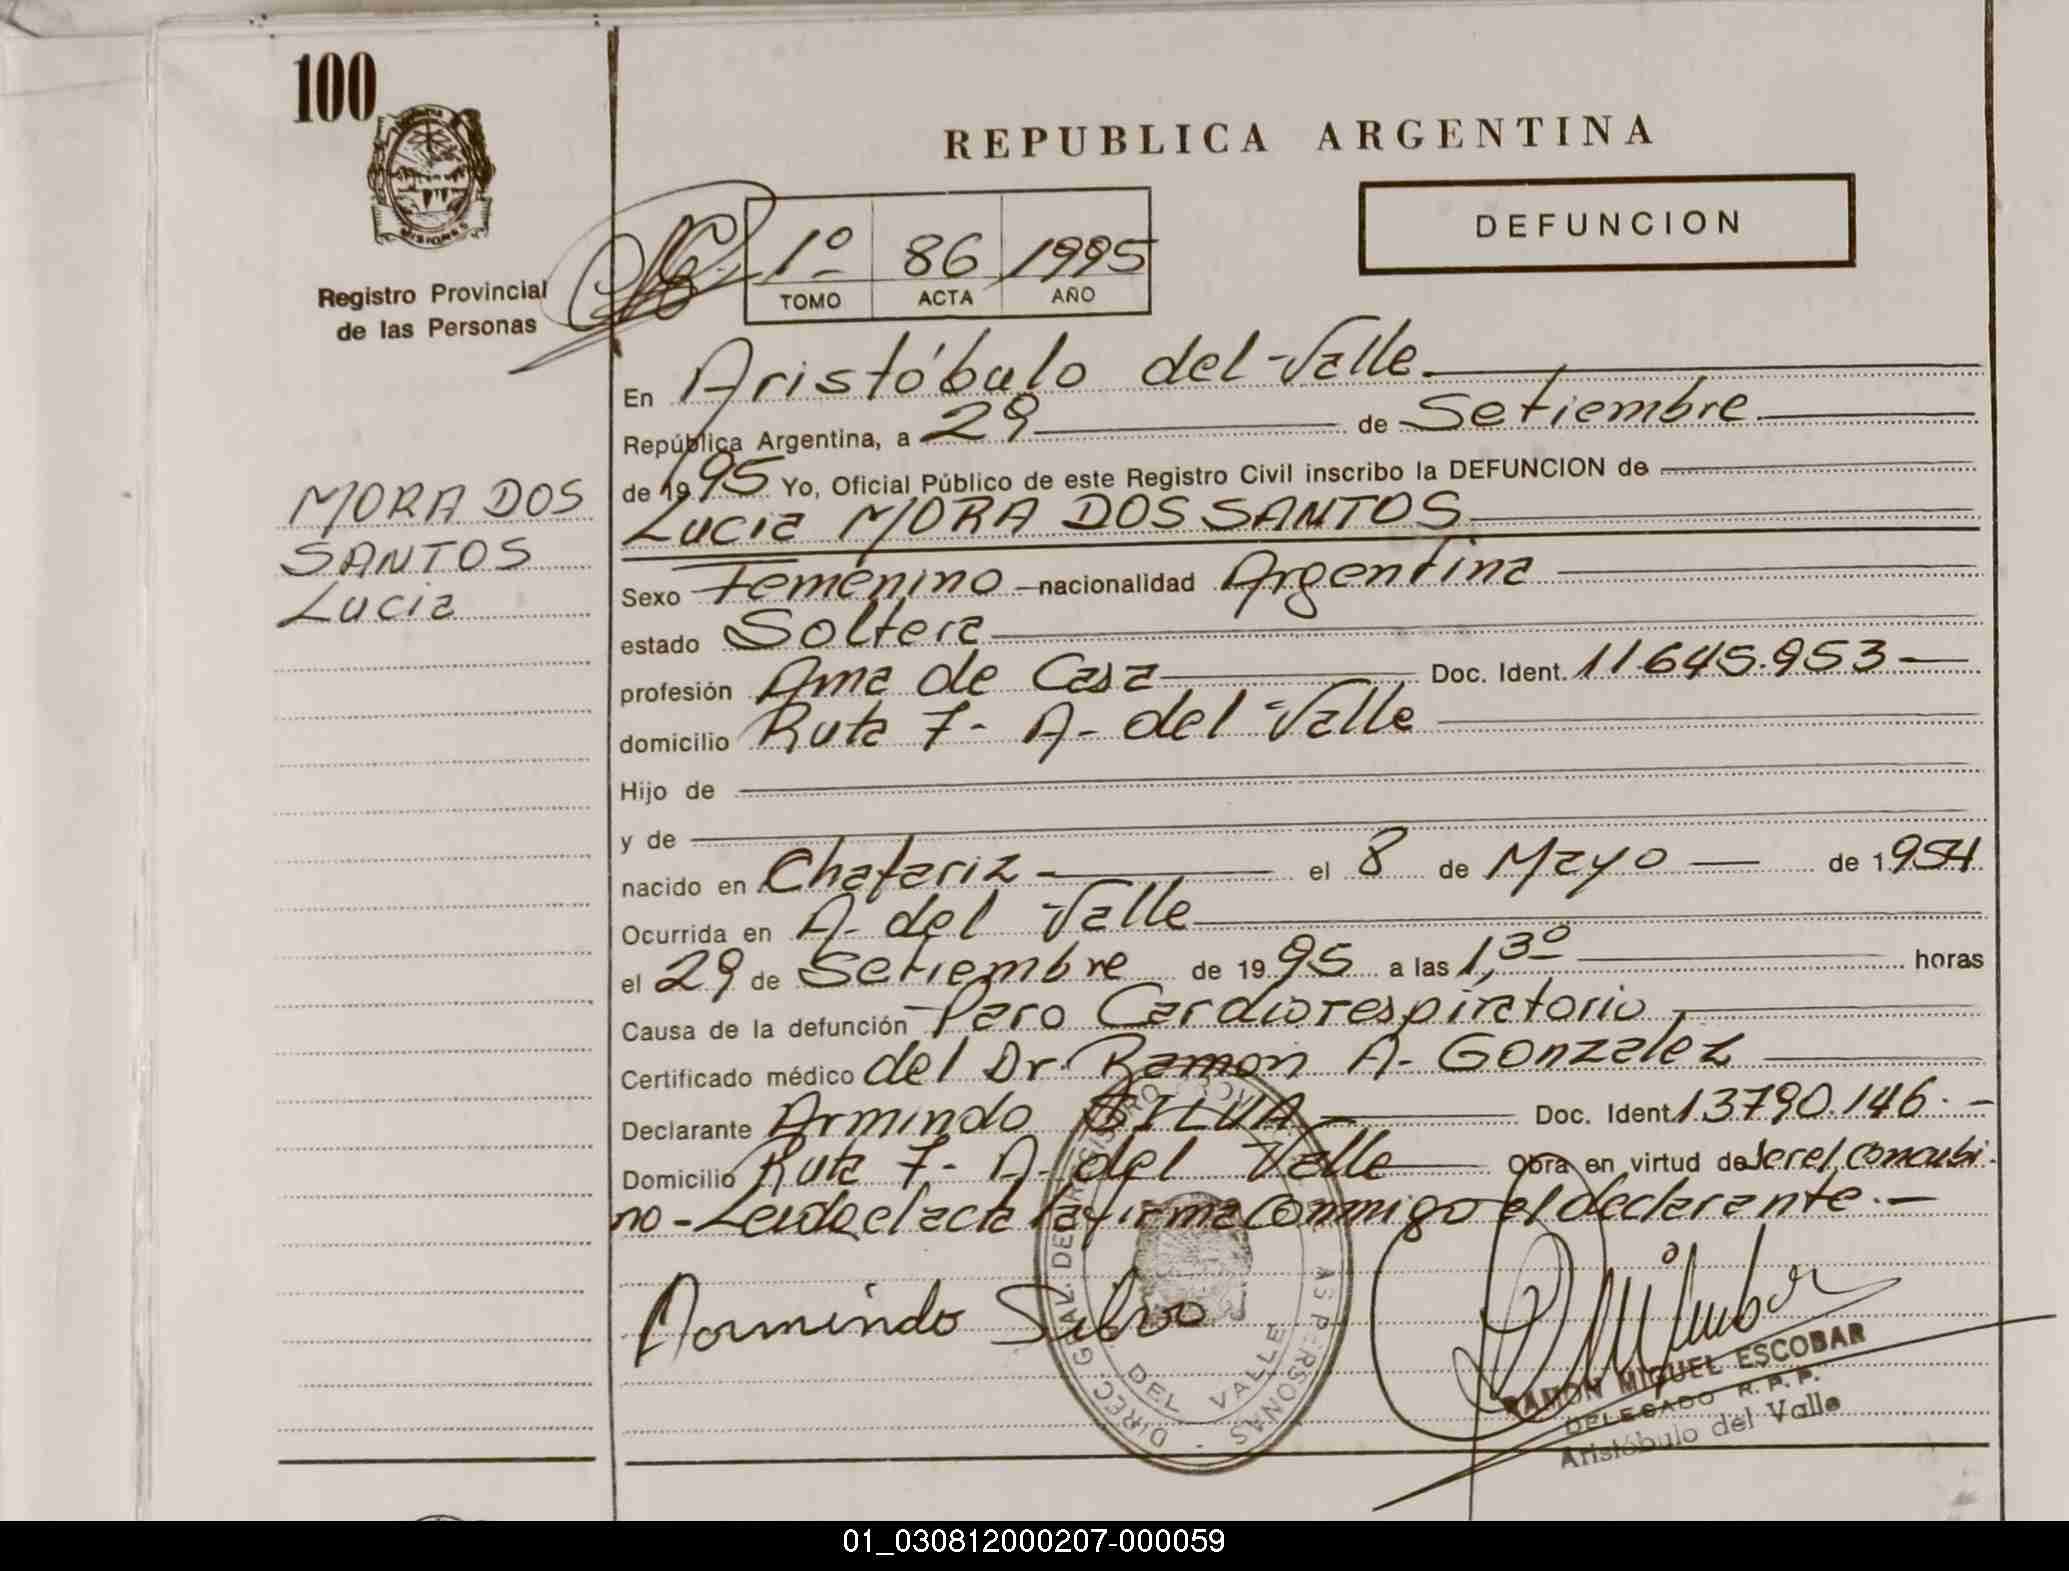 100
MISIONES
Registro Provincial
de las Personas
REPUBLICA ARGENTINA
DEFUNCION
1º 86 1995
TOMO ACTA AÑO
MORA DOS
SANTOS
Lucia
En Aristóbulo del Valle
República Argentina, a 29 de Setiembre
de 1995 Yo, Oficial Público de este Registro Civil inscribo la DEFUNCION de
Lucia MORA DOS SANTOS
Sexo Femenino nacionalidad Argentina
estado Soltera
profesión Ama de Casa Doc. Ident. 11.645.953
domicilio Ruta 7- A- del Valle
Hijo de
y de
nacido en Chafariz el 8 de Mayo de 1954
Ocurrida en A- del Valle
el 29 de Setiembre de 1995 a las 1,30 horas
Causa de la defunción Paro Cardiorespiratorio
Certificado médico del Dr. Ramon A- Gonzalez
Declarante Armindo SILVA Doc. Ident. 13790.146.-
Domicilio Ruta 7- A- del Valle Obra en virtud de ser el Concubi-
no - Leida el acta la firma Conmigo el declarante.-
Armindo Silva
DIREC. GRAL. DE REGISTRO PERSONAS
DEL VALLE
RAMON MIGUEL ESCOBAR
DELEGADO R. P. P.
Aristóbulo del Valle
01_030812000207-000059